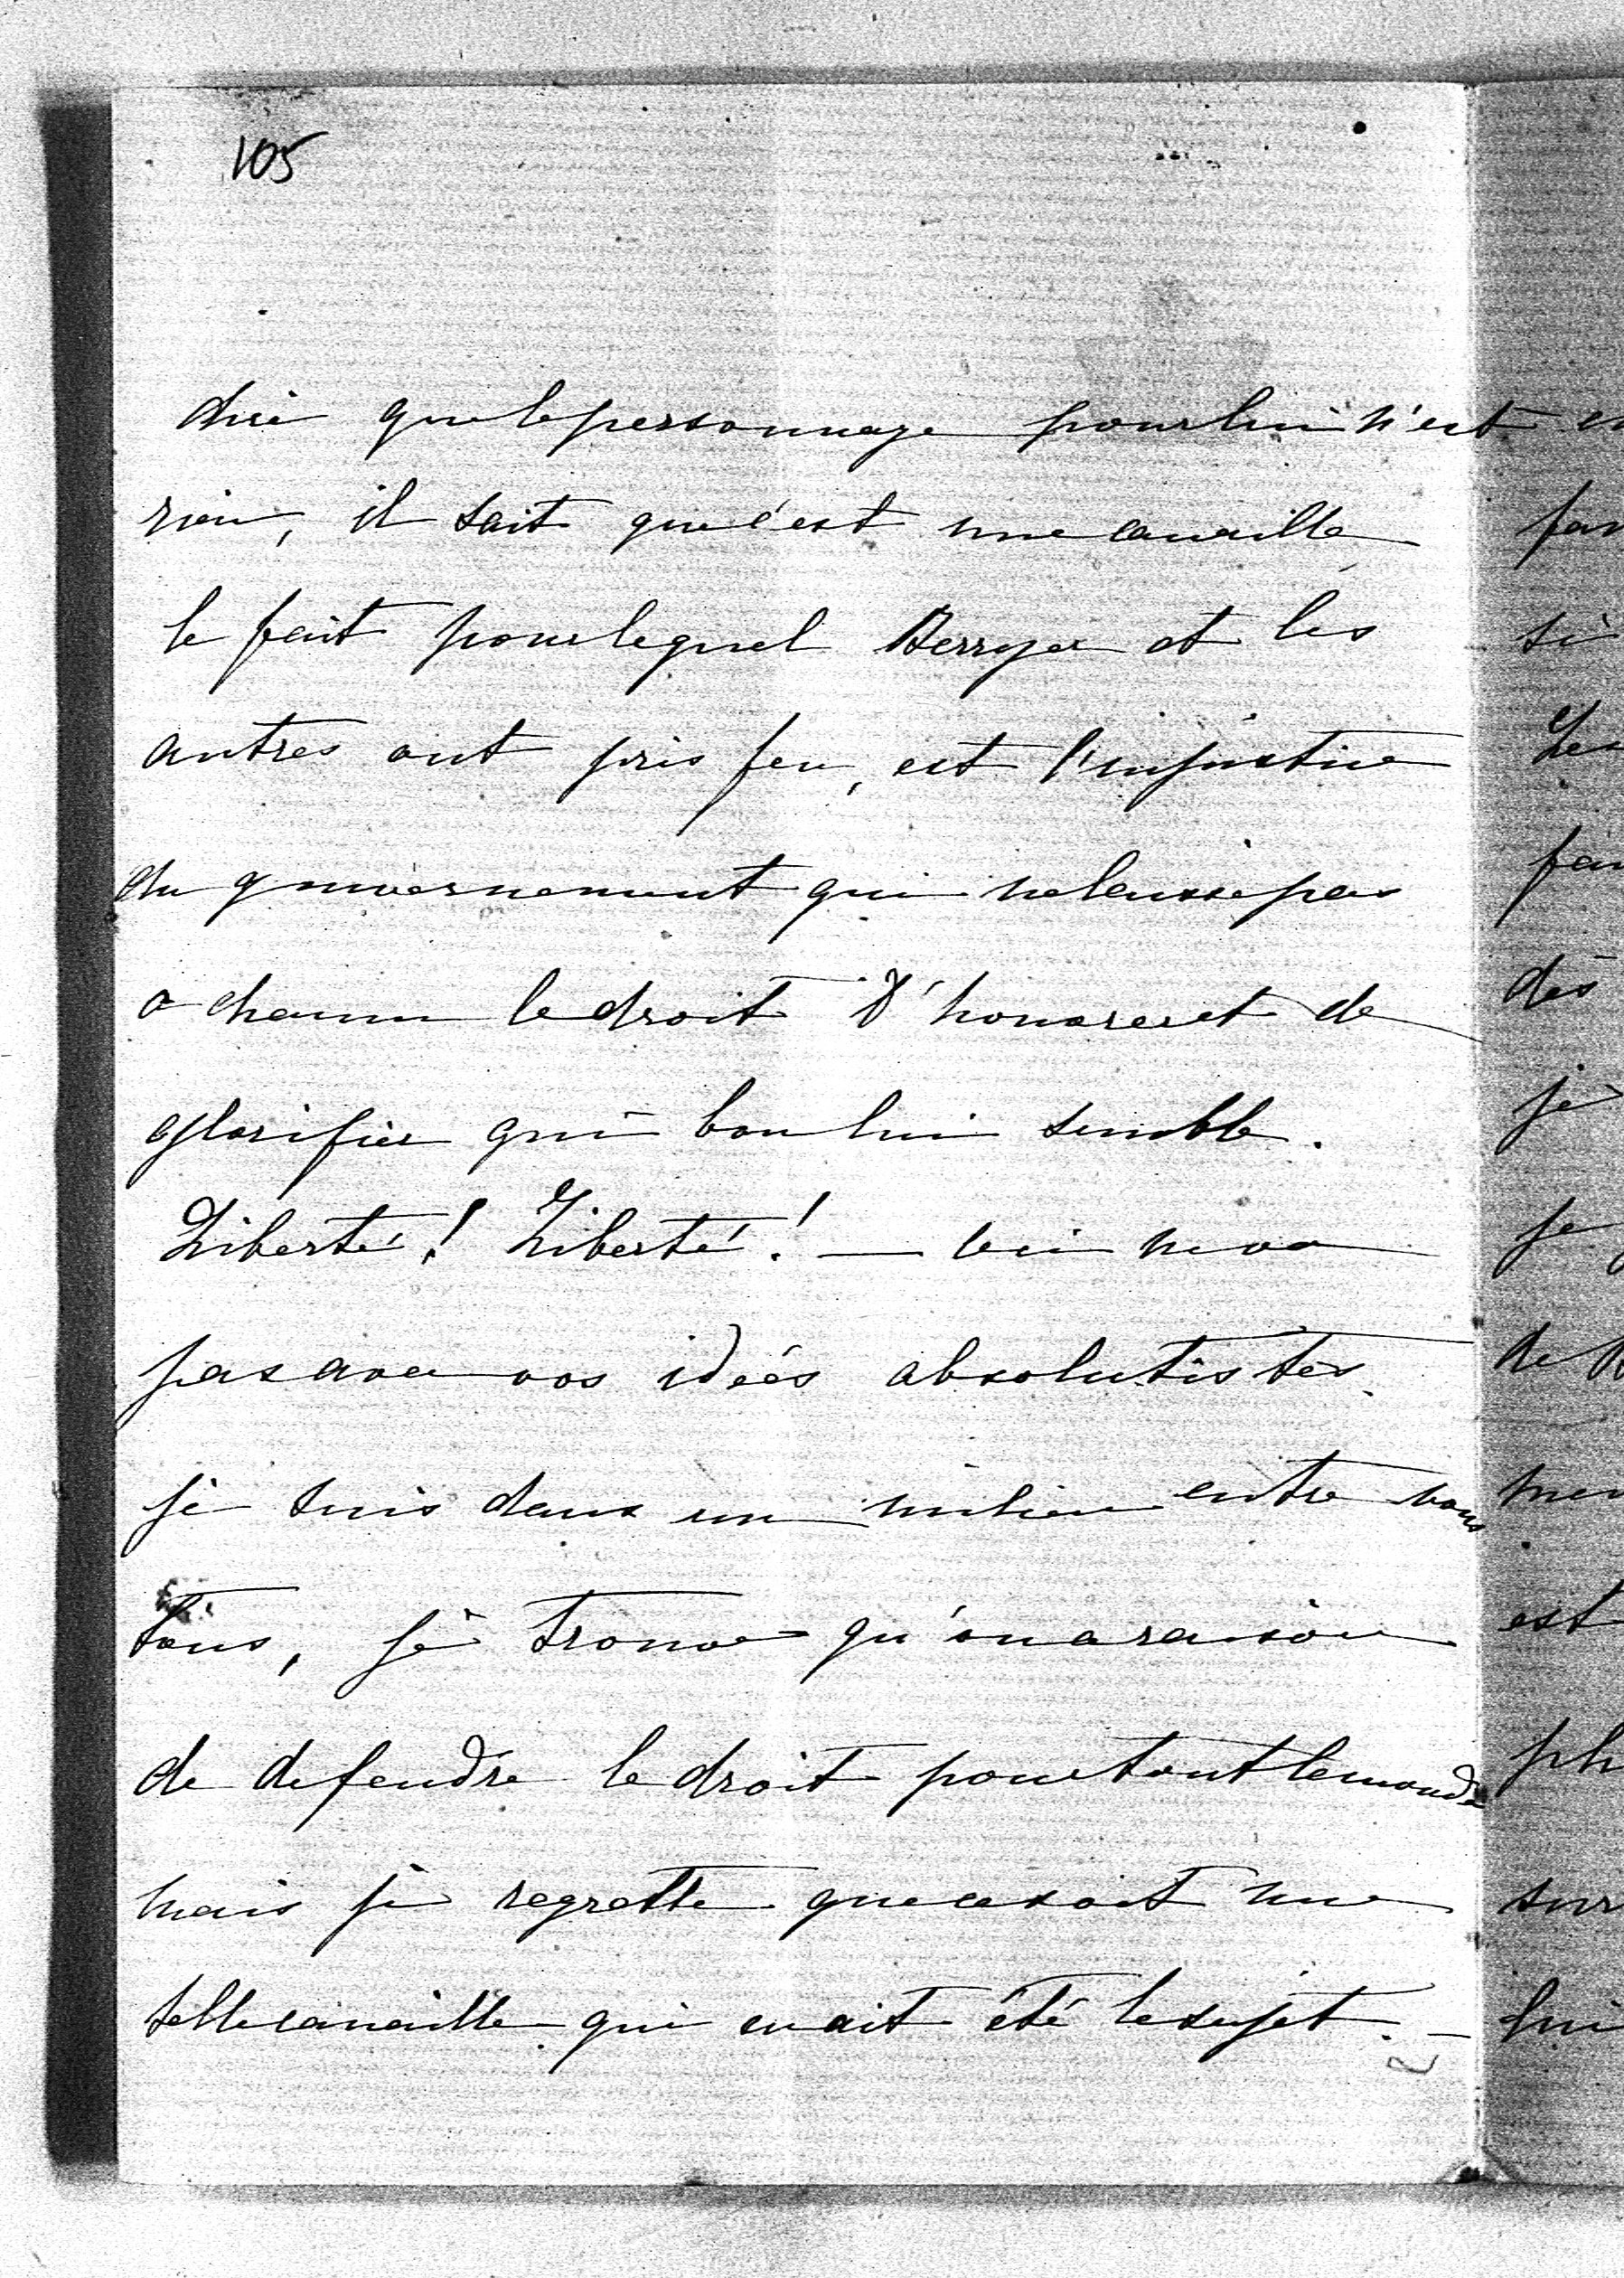 105
dire que le personnage pour lui n'est
rien, il sait que c'est une canaille,
le fait pour lequel Berryer et les
autres ont pris feu, est l'injustice
du gouvernement qui ne laisse pas
a chacun le droit d'honorer et de
glorifier qui bon lui semble.
Liberté! Liberté! — ceci ne va
pas avec vos idées absolutistes.
je suis dans un milieu entre vous
tous, je trouve qu'on a raison
de defendre le droit pour tout le monde
mais je regrette que ce soit une
telle canaille qui en ait été le sujet. —